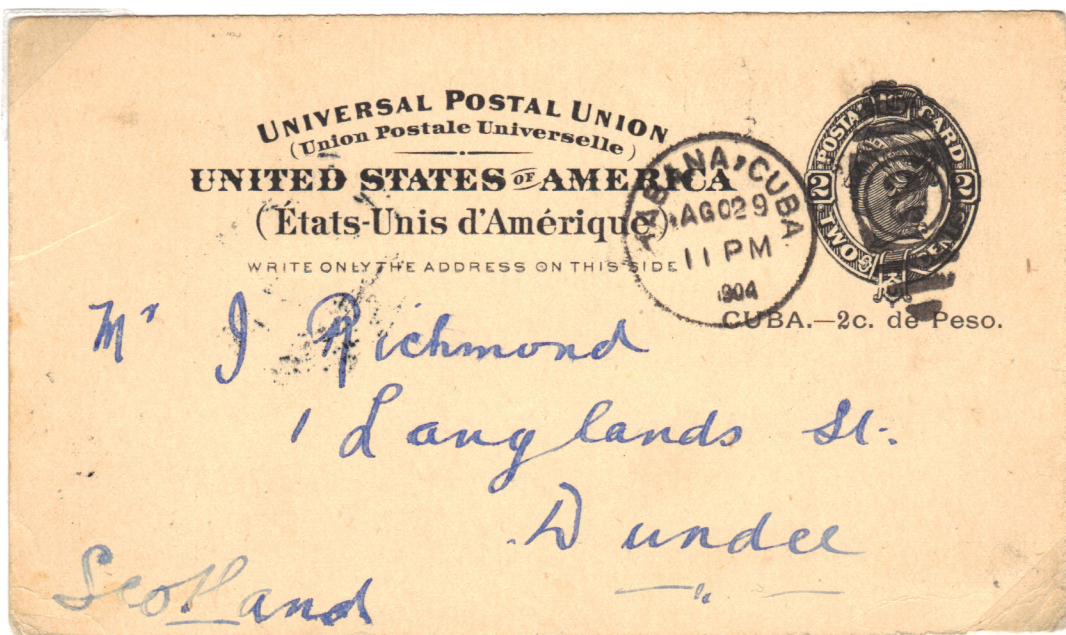 UNIVERSAL POSTAL UNION
(Union Postale Universelle)
UNITED STATES OF AMERICA
(États-Unis d'Amérique)
WRITE ONLY THE ADDRESS ON THIS SIDE
HABANA, CUBA
AGO 29
11 PM
1904
POSTAL CARD
2 2
CUBA.—2c. de Peso.
Mr J Richmond
1 Langlands St.
Dundee
Scotland